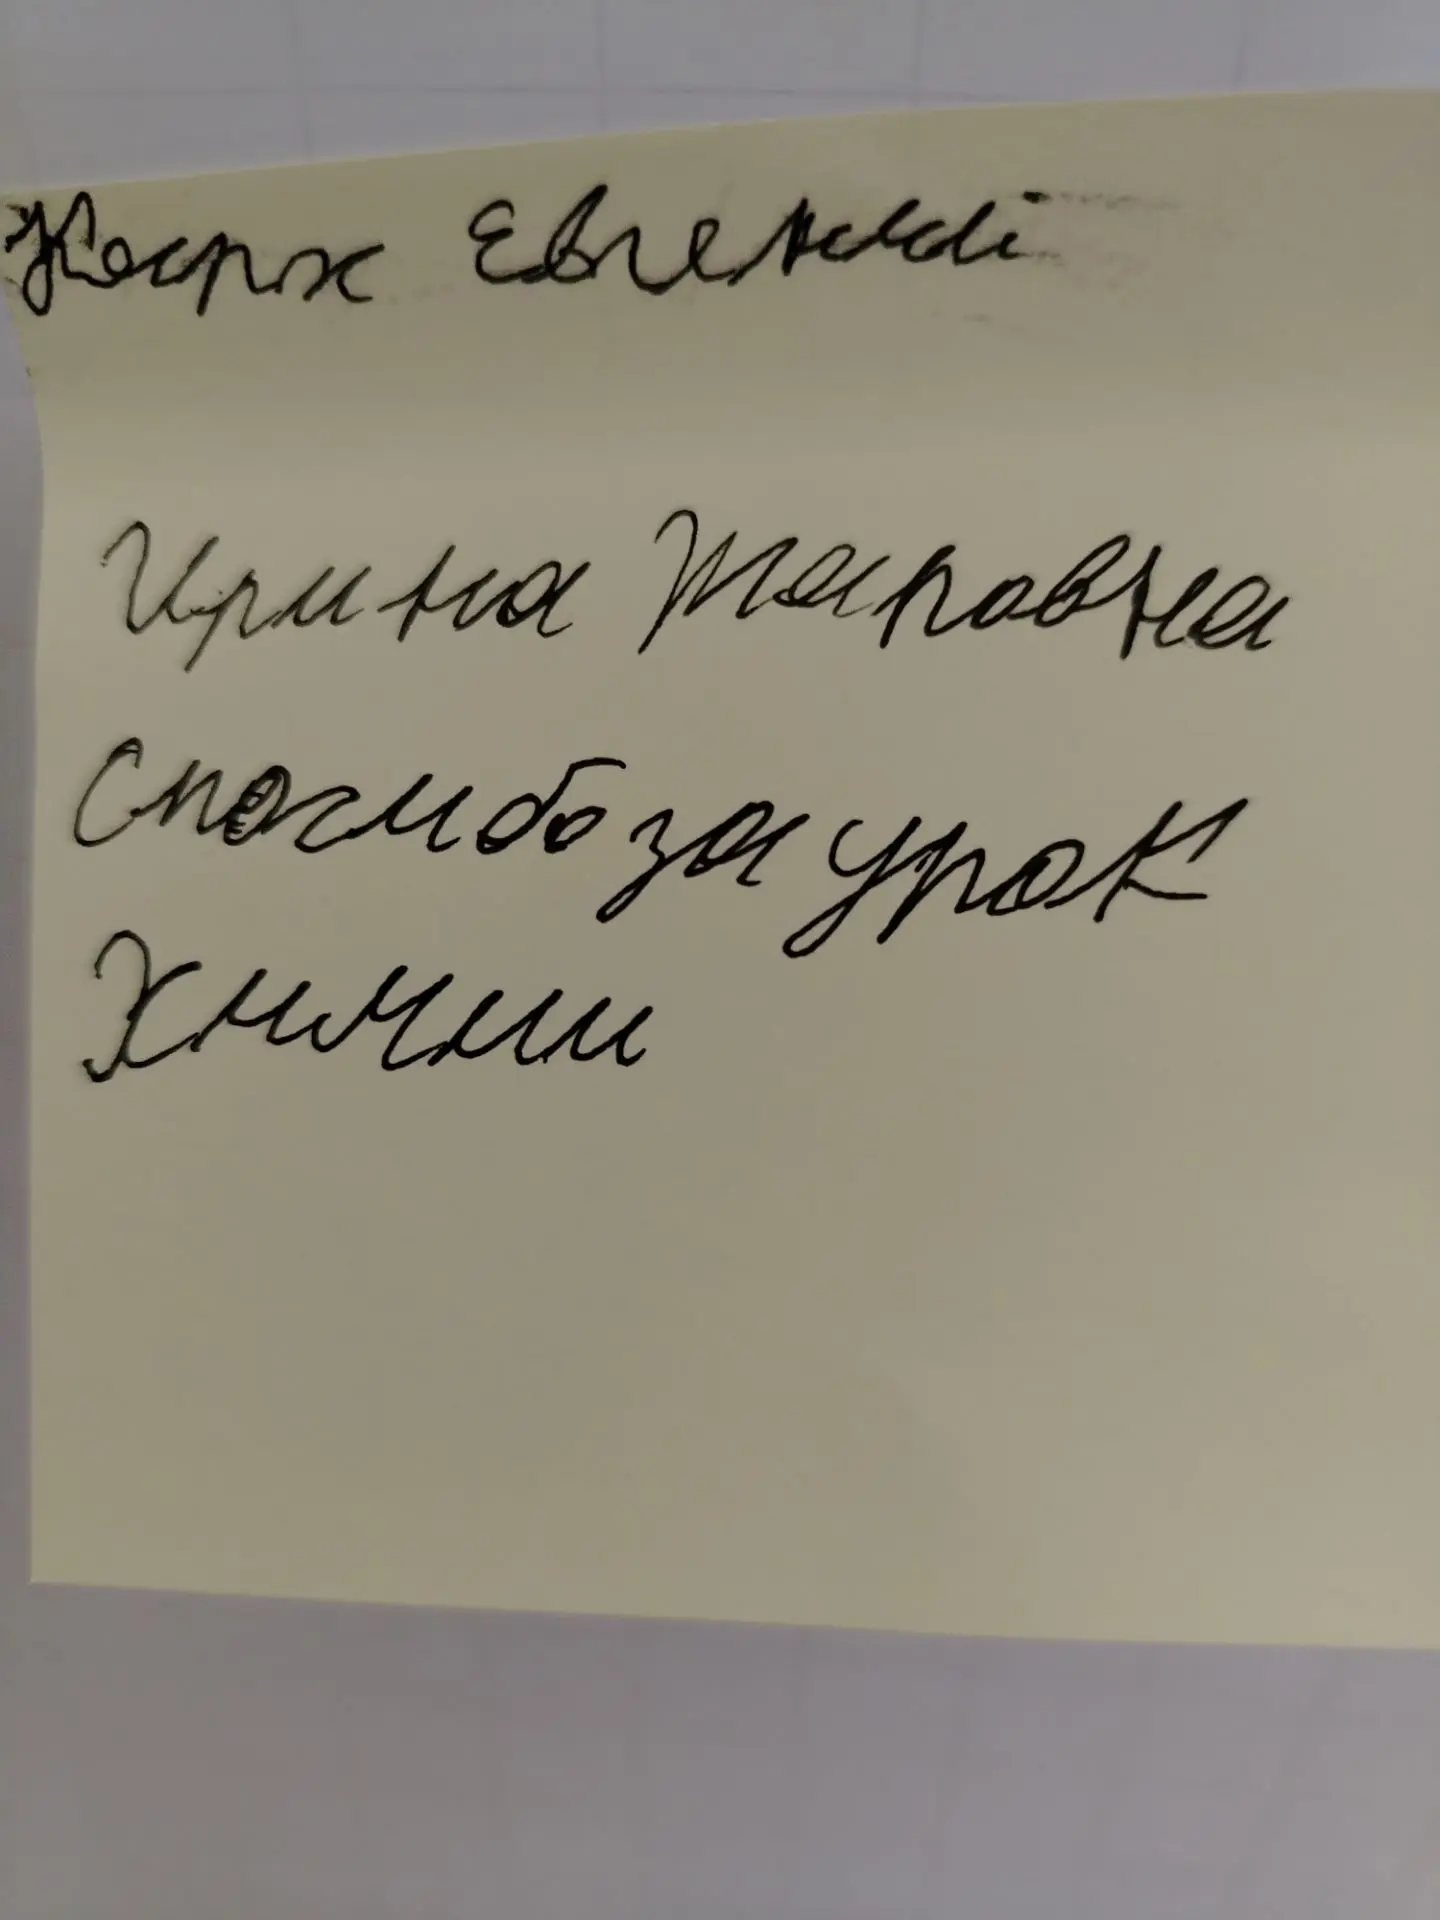 Евгений
Ирина Таировна
Спасибо за урок
Химии